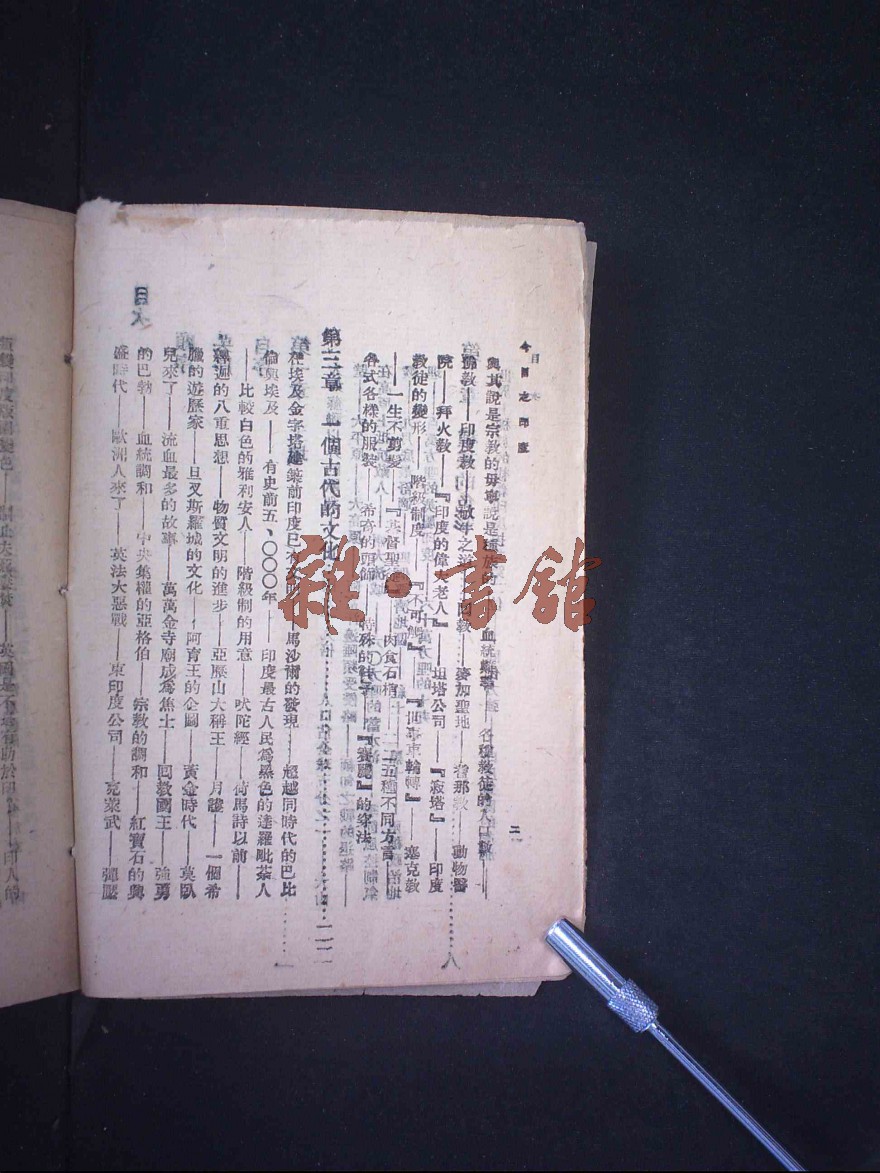 今日之印度
二
與其說是宗教的毋寧說是民族的——血統——各種教徒的人口數——
佛教——印度教——敬牛之——回教——麥加聖地——耆那教——動物醫
院——拜火教——『印度的偉大老人』——坦塔公司——『寂塔』——印度
教徒的變形——階級制度——『不可觸』——『車輪轉』——塞克教
——一生不剪髮——『基督聖徒』——肉食石棺——二二五種不同方言——
各式各樣的服裝——希奇的頭飾——特殊的鞋子——『賽麗』的穿法
第三章 一個古代的文化……一一
在埃及金字塔建築前印度已有文明——馬沙爾的發現——超越同時代的巴比
倫與埃及——有史前五、〇〇〇年——印度最古人民爲黑色的達羅毗荼人
——比較白色的雅利安人——階級制的用意——吠陀經——荷馬詩以前——
釋迦的八重思想——物質文明的進步——亞歷山大稱王——月護——一個希
臘的遊歷家——旦叉斯羅城的文化——阿育王的企圖——黃金時代——莫臥
兒來了——流血最多的故事——萬萬金寺廟成爲焦土——回教國王——強勇
的巴勃——血統調和——中央集權的亞格伯——宗教的調和——紅寶石的興
盛時代——歐洲人來了——英法大惡戰——東印度公司——克萊武——彈壓
雜·書館